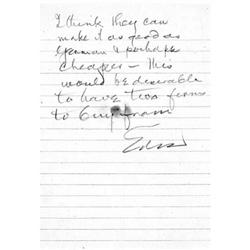 I think they can
make it as good as
German & perhaps
cheaper — This
would be desirable
to have two firms
to buy from
Edison